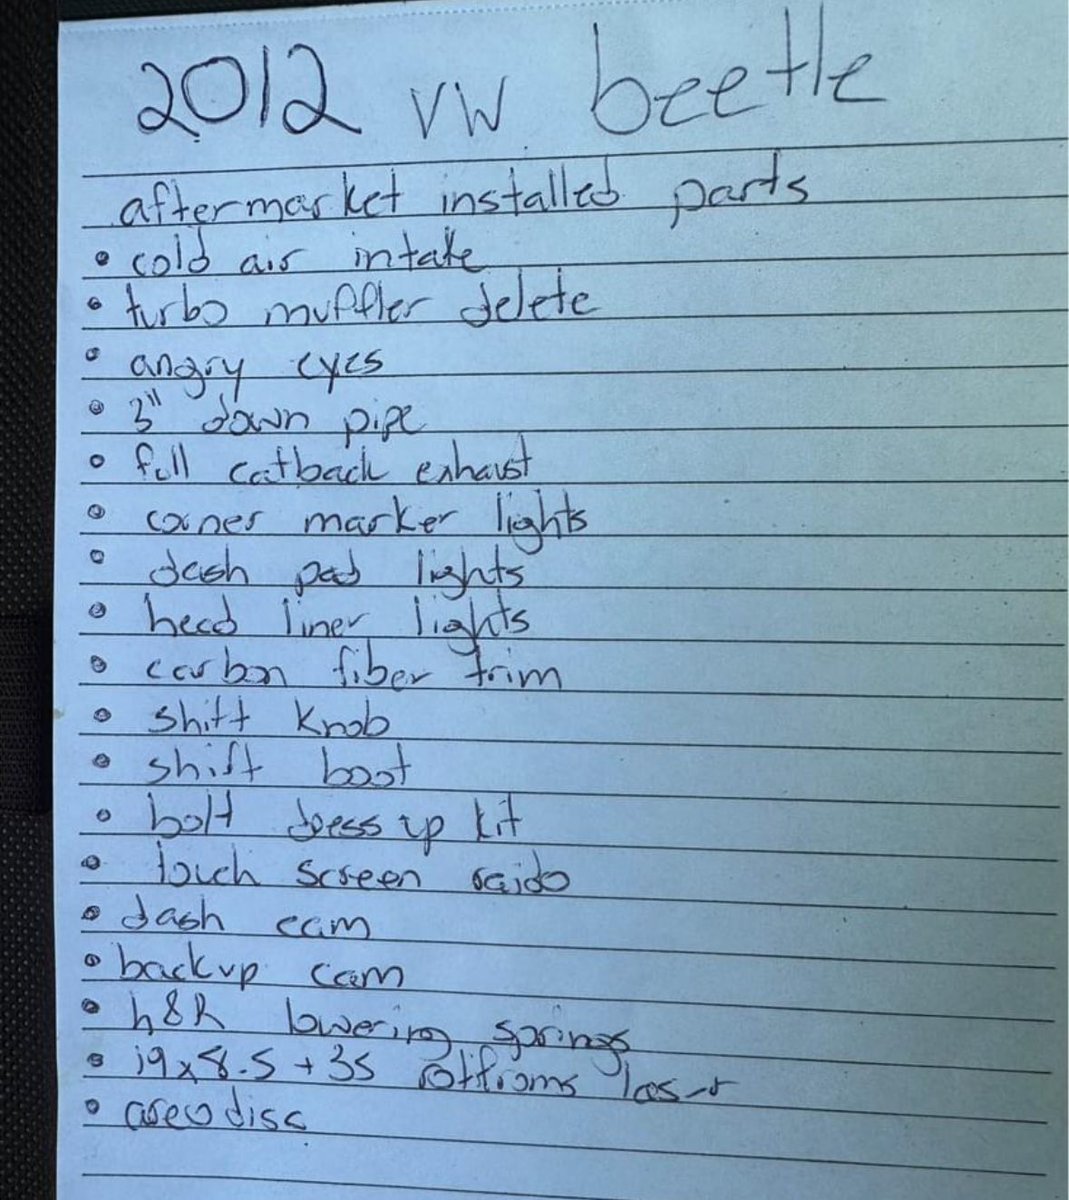 2012 vw beetle
aftermarket installed parts
• cold air intake
• turbo muffler delete
• angry eyes
• 3" down pipe
• full catback exhaust
• corner marker lights
• dash pad lights
• head liner lights
• carbon fiber trim
• shift knob
• shift boot
• bolt dress up kit
• touch screen raido
• dash cam
• backup cam
• h&R lowering springs
• 19x8.5 +35 rotiforms
• areodisc